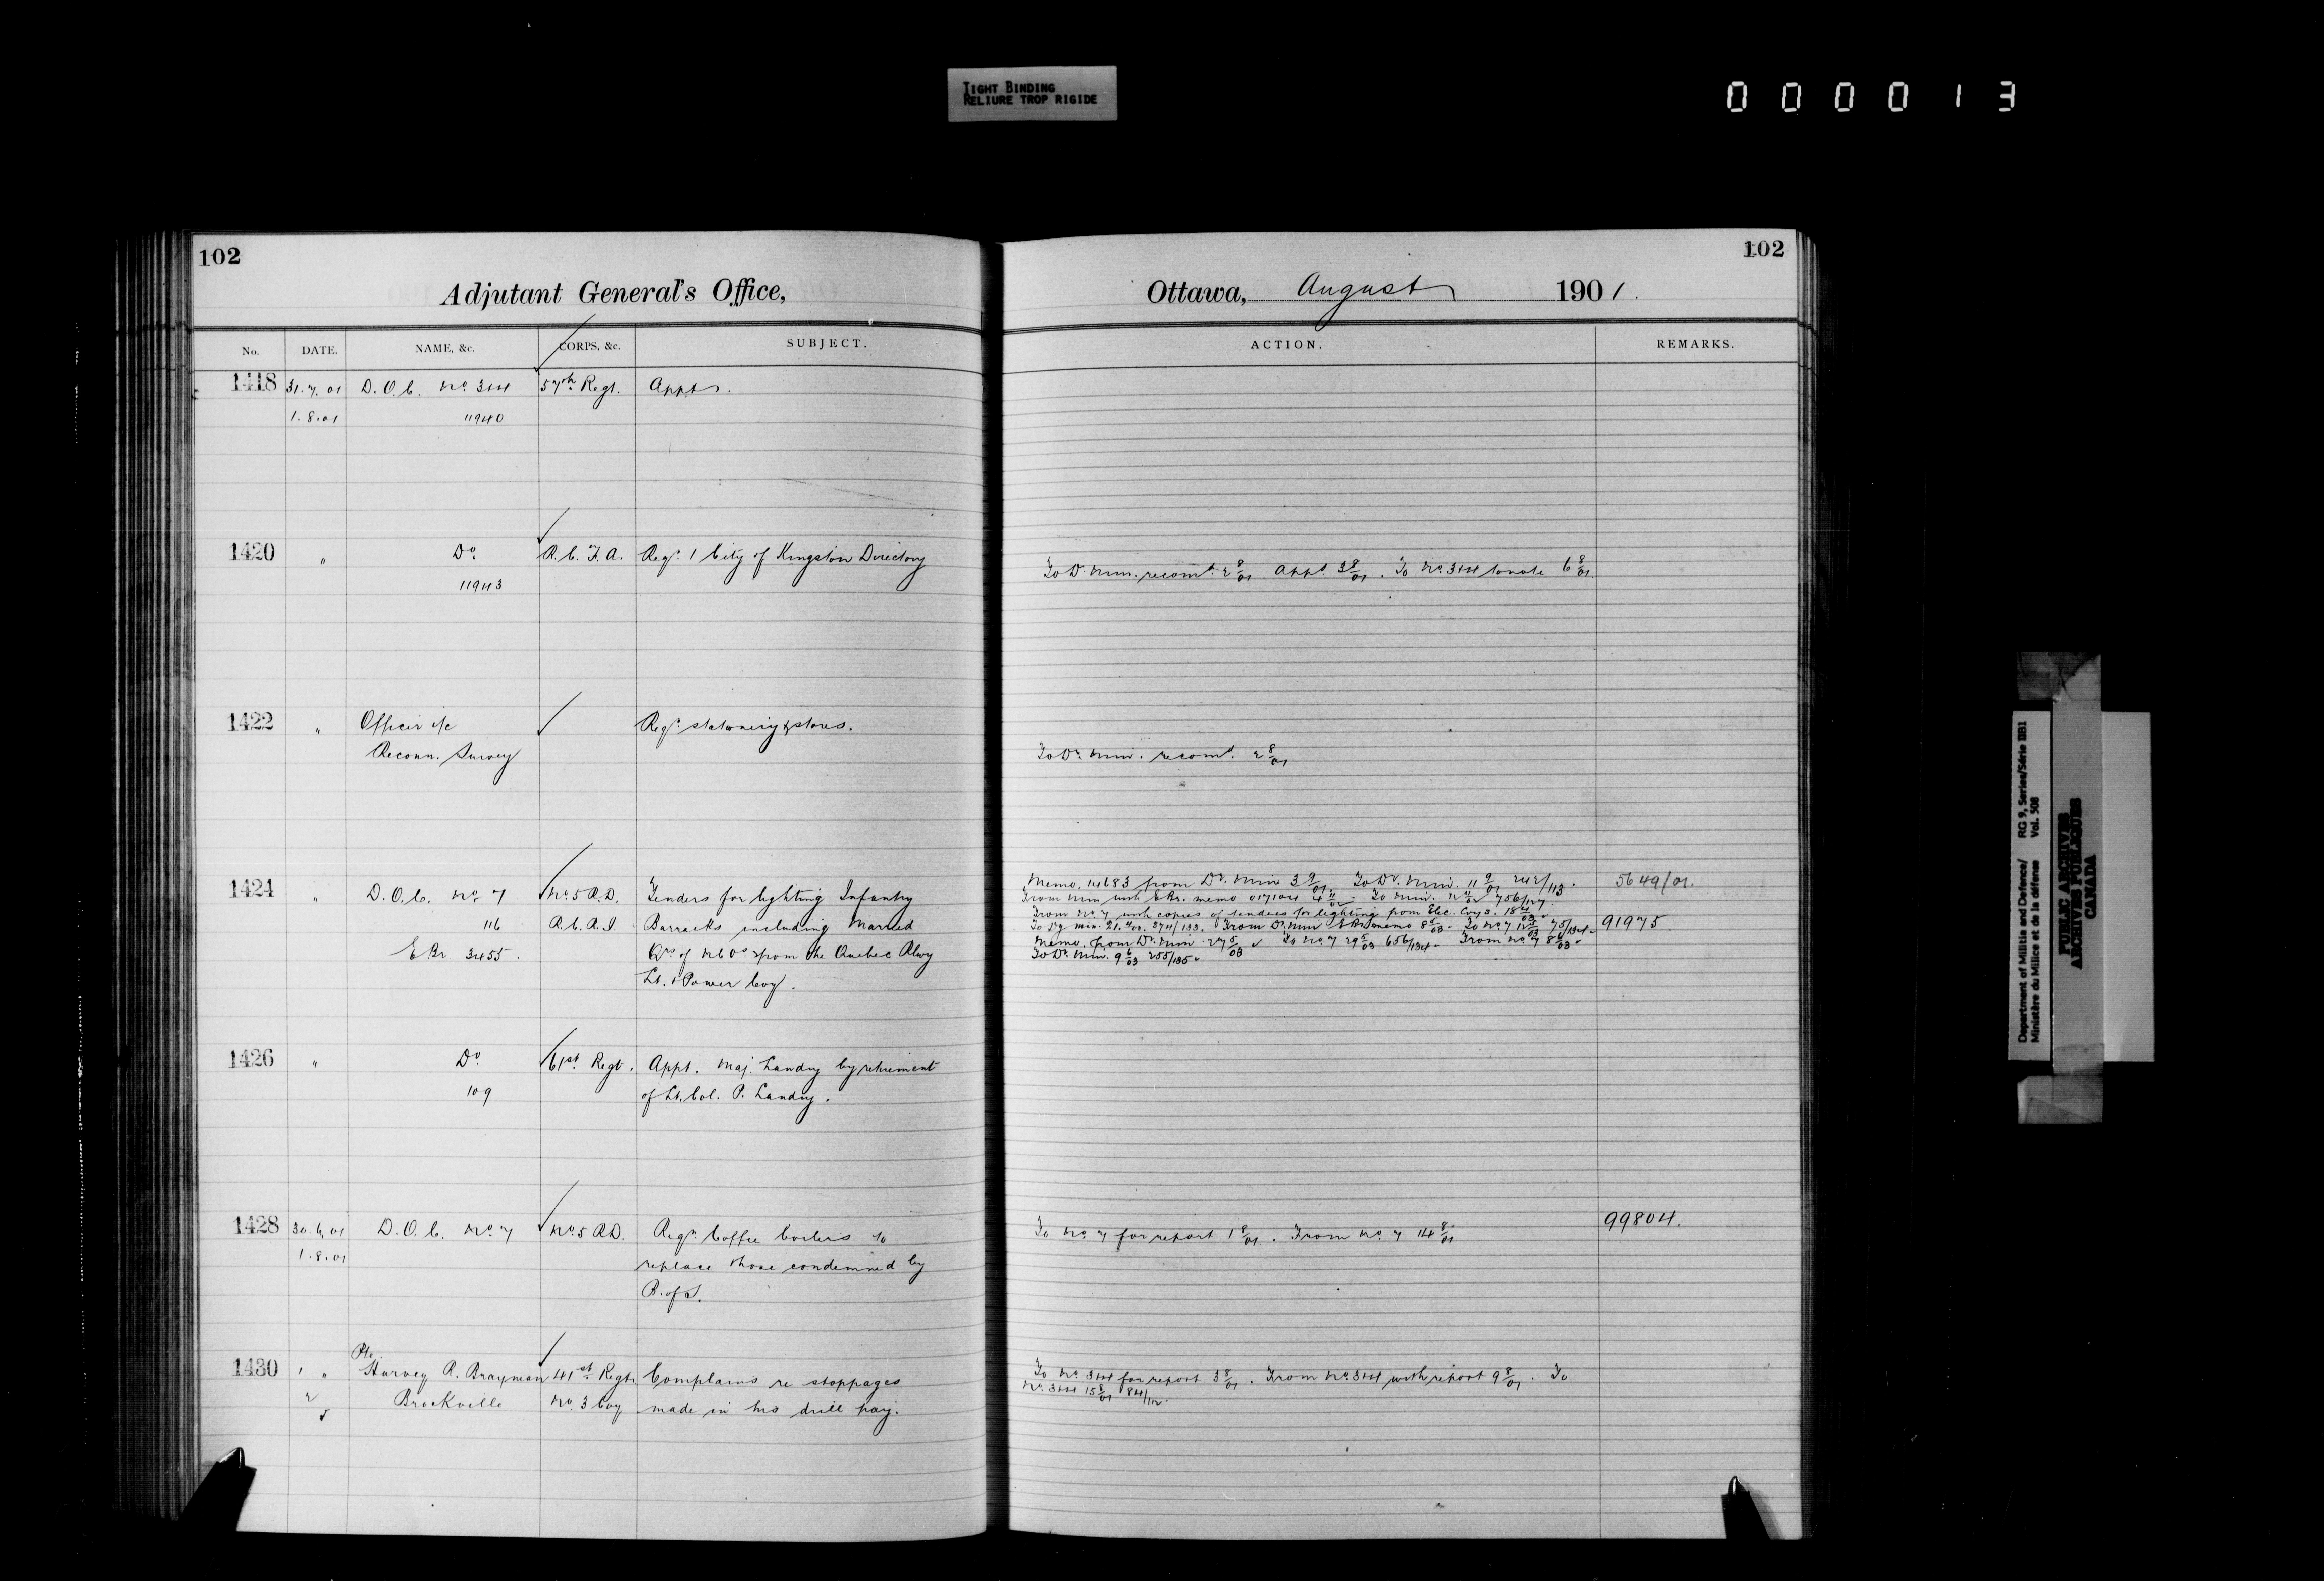 TIGHT BINDING
RELIURE TROP RIGIDE
000013
102
Adjutant General's Office,
No. DATE. NAME, &c. CORPS, &c. SUBJECT.
1418 31.7.01 D.O.C. No. 3+4 57th Regt. Appts.
1.8.01 11940
1420 " Do. R.C.F.A. Reqn. 1 City of Kingston Directory
11943
1422 " Officer i/c Reqn. stationery & stores.
Reconn. Survey
1424 " D.O.C. No. 7 No. 5 R.D. Tenders for lighting Infantry
116 R.C.R.I. Barracks including Married
E Br 3455. Qrs of NCOs from the Quebec Rlwy
Lt. & Power Coy.
1426 " Do 61st Regt. Appt. Maj. Landry by retirement
109 of Lt. Col. P. Landry.
1428 30.6.01 D.O.C. No. 7 No. 5 RD. Reqn. Coffee boilers to
1.8.01 replace those condemned by
B. of S.
1430 1 " Pte.
Harvey R. Brayman 41st Regt. Complains re stoppages
Brockville No. 3 Coy made in his drill pay.
102
Ottawa, August 1901.
ACTION. REMARKS.
To D. Min. recomd. 2 8/01 Appd. 3 8/01. To No. 3+4 6 8/01
To Dr. Min. recomd. 2 8/01
Memo. 14683 from Dr. Min 3 9/01 To Dr. Min. 11 9/01 242/113. 5649/01.
From Min with E Br. memo 017104 4 11/02 To Min. 12 11/02 756/127.
From No. 7 with copies of tenders for lighting from Elec. Coys. 18 4/03
To Dy. Min. 21.4.03. 374/133. From Dr. Min E Br memo 8 5/03 To No. 7 12 5/03 75/134 91975.
Memo. from Dr. Min. 27 5/03 To No. 7 29 5/03 656/134 From No. 7 8 6/03
To Dr. Min. 9 6/03 255/135
To No. 7 for report 1 8/01. From No. 7 14 8/01 99804.
To No. 3+4 for report 3 8/01. From No. 3+4 with report 9 8/01. To
No. 3+4 15 8/01 84/112.
Department of Militia and Defence/ RG 9, Series/Série IIB1
Ministère du Milice et de la défense Vol. 508
PUBLIC ARCHIVES
ARCHIVES PUBLIQUES
CANADA